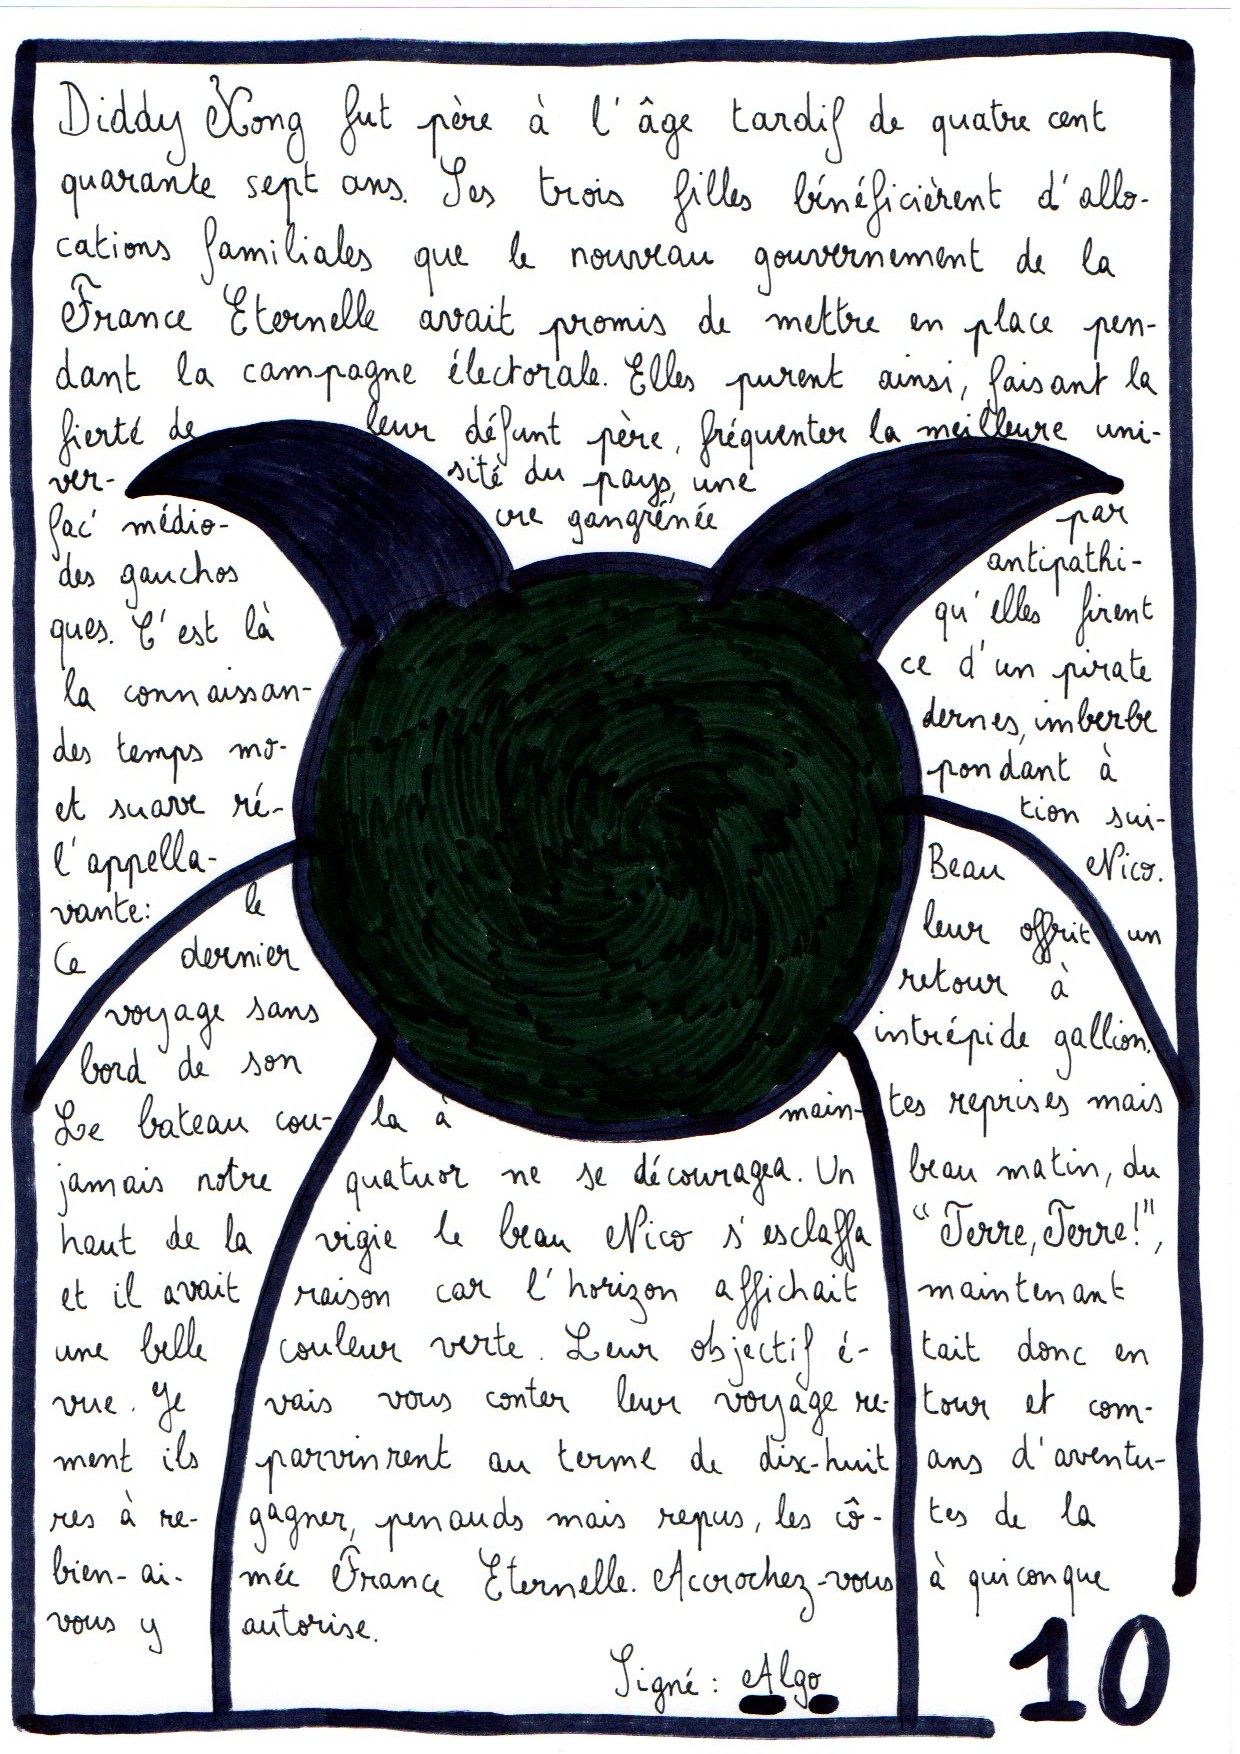 Diddy Kong fut père à l'âge tardif de quatre cent
quarante sept ans. Ses trois filles bénéficièrent d'allo-
cations familiales que le nouveau gouvernement de la
France Eternelle avait promis de mettre en place pen-
dant la campagne électorale. Elles purent ainsi, faisant la
fierté de leur défunt père, fréquenter la meilleure uni-
ver- sité du pays, une
fac' médio- cre gangrénée par
des gauchos antipathi-
ques. C'est là qu'elles firent
la connaissan- ce d'un pirate
des temps mo- dernes, imberbe
et suave ré- pondant à
l'appella- tion sui-
vante: le Beau Nico.
Ce dernier leur offrit un
voyage sans retour à
bord de son intrépide gallion.
Le bateau cou- la à main- tes reprises mais
jamais notre quatuor ne se découragea. Un beau matin, du
haut de la vigie le beau Nico s'esclaffa "Terre, Terre!",
et il avait raison car l'horizon affichait maintenant
une belle couleur verte. Leur objectif é- tait donc en
vue. Je vais vous conter leur voyage re- tour et com-
ment ils parvinrent au terme de dix-huit ans d'aventu-
res à re- gagner, penauds mais repus, les cô- tes de la
bien-ai- mée France Eternelle. Accrochez-vous à quiconque
vous y autorise.
Signé : Algo
10